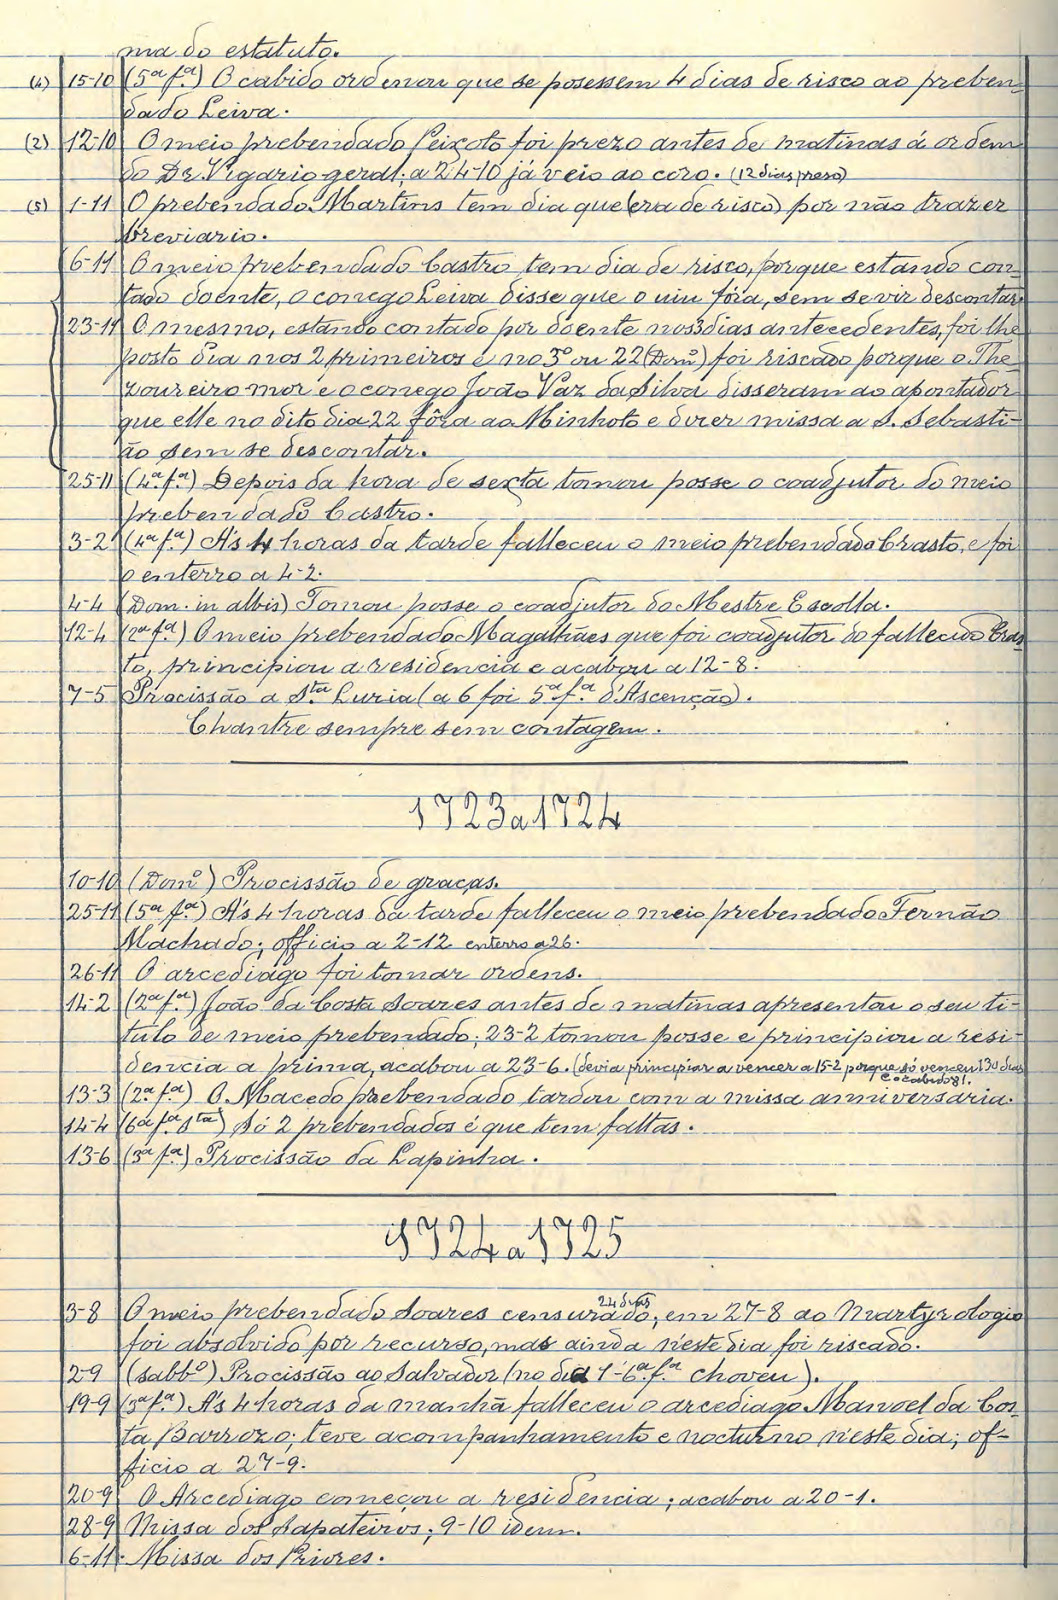 ma do estatuto.
(4) 15-10 (5ª fª) O cabido ordenou que se posessem 4 dias de risco ao preben-
dado Leiva.
(2) 12-10 O meio prebendado Peixoto foi prezo antes de matinas á ordem
do Dr. Vigario geral; a 24-10 já veio ao coro. (12 dias preso)
(5) 1-11 O prebendado Martins tem dia que (era de risco) por não trazer
breviario.
6-11 O meio prebendado Castro tem dia de risco, porque estando con-
tado doente, o conego Leiva disse que o viu fóra, sem se vir descontar.
23-11 O mesmo, estando contado por doente nos 3 dias antecedentes, foi lhe
posto dia nos 2 primeiros e no 3º ou 22 (Domº) foi riscado porque o The-
zoureiro mor e o conego João Vaz da Silva disseram ao apontador
que elle no dito dia 22 fôra ao Minhoto e dizer missa a S. Sebasti-
ão sem se descontar.
25-11 (4ª fª) Depois da hora de sexta tomou posse o coadjutor do meio
prebendado Castro.
3-2 (4ª fª) A's 4 horas da tarde falleceu o meio prebendado Crasto, e foi
o enterro a 4-2.
4-4 (Dom. in albis) Tomou posse o coadjutor do Mestre Escolla.
12-4 (2ª fª) O meio prebendado Magalhães que foi coadjutor do fallecido Cras-
to, principiou a residencia e acabou a 12-8.
7-5 Procissão a Stª Luzia (a 6 foi 5ª fª d'Ascenção).
Chantre sempre sem contagem.
1723 a 1724
10-10 (Domº) Procissão de graças.
25-11 (5ª fª) A's 4 horas da tarde falleceu o meio prebendado Fernão
Machado; officio a 2-12 enterro a 26.
26-11 O arcediago foi tomar ordens.
14-2 (2ª fª) João da Costa Soares antes de matinas apresentou o seu ti-
tulo de meio prebendado; 23-2 tomou posse e principiou a resi-
dencia a prima, acabou a 23-6. (devia principiar a vencer a 15-2 porque só venceu 130 dias
e o cabido 81.
13-3 (2ª fª) O Macedo prebendado tardou com a missa anniversaria.
14-4 (6ª fª Stª) Só 2 prebendados é que tem faltas.
13-6 (3ª fª) Procissão da Lapinha.
1724 a 1725
3-8 O meio prebendado Soares censurado, 24 dias em 27-8 ao Martyrologio
foi absolvido por recurso, mas ainda n'este dia foi riscado.
2-9 (sabbº) Procissão ao Salvador (no dia 1-6ª fª choveu).
19-9 (3ª fª) A's 4 horas da manhã falleceu o arcediago Manoel da Cos-
ta Barrozo; teve acompanhamento e nocturno n'este dia; of-
ficio a 27-9.
20-9 O Arcediago começou a residencia; acabou a 20-1.
28-9 Missa dos Sapateiros; 9-10 idem.
6-11 Missa dos Priores.